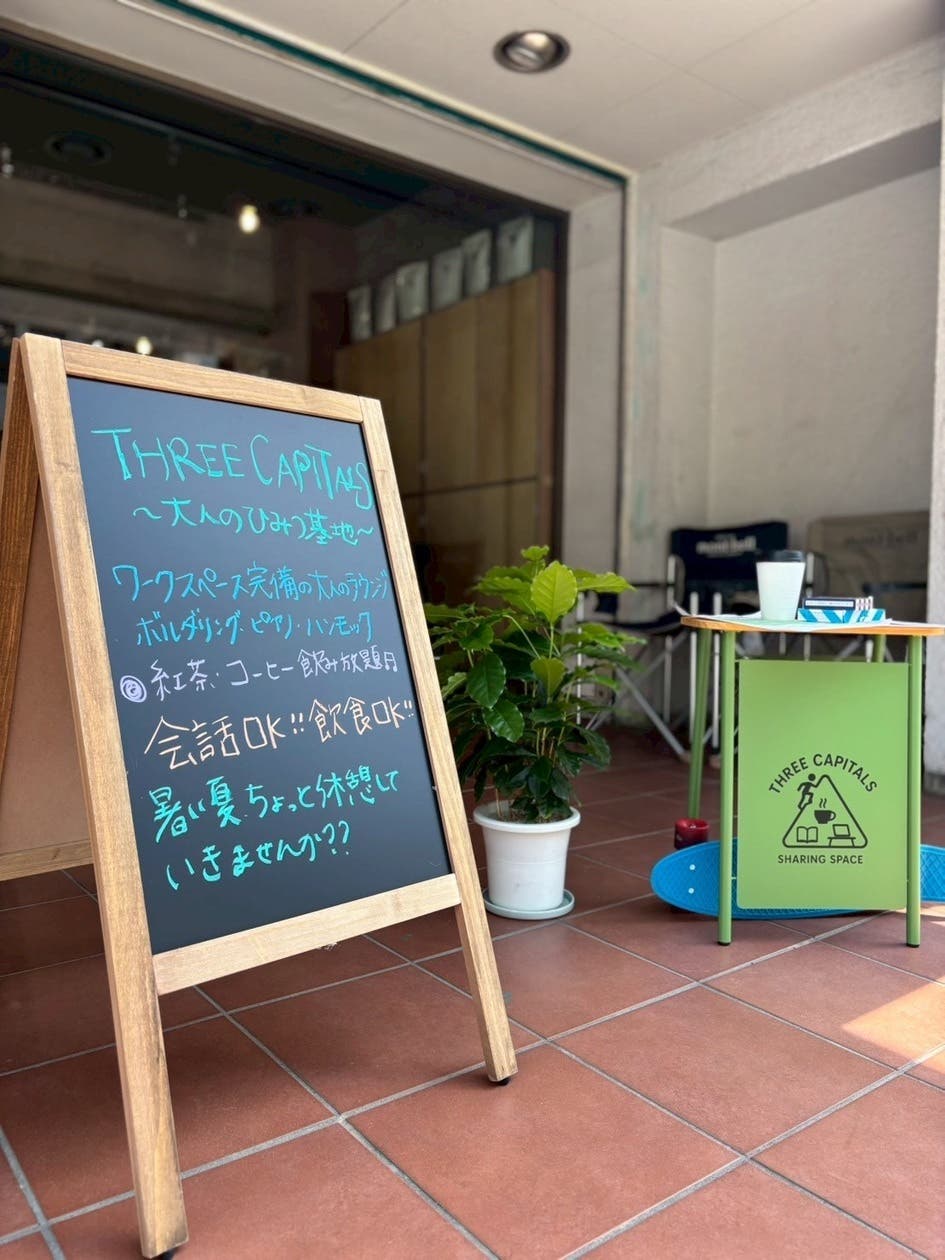 THREE CAPITALS
～大人のひみつ基地～
ワークスペース完備の大人のラウンジ
ボルダリング・ピアノ・ハンモック
紅茶・コーヒー飲み放題
会話OK!!飲食OK!!
暑い夏、ちょっと休憩して
いきませんか??
mont-bell
THREE CAPITALS
SHARING SPACE